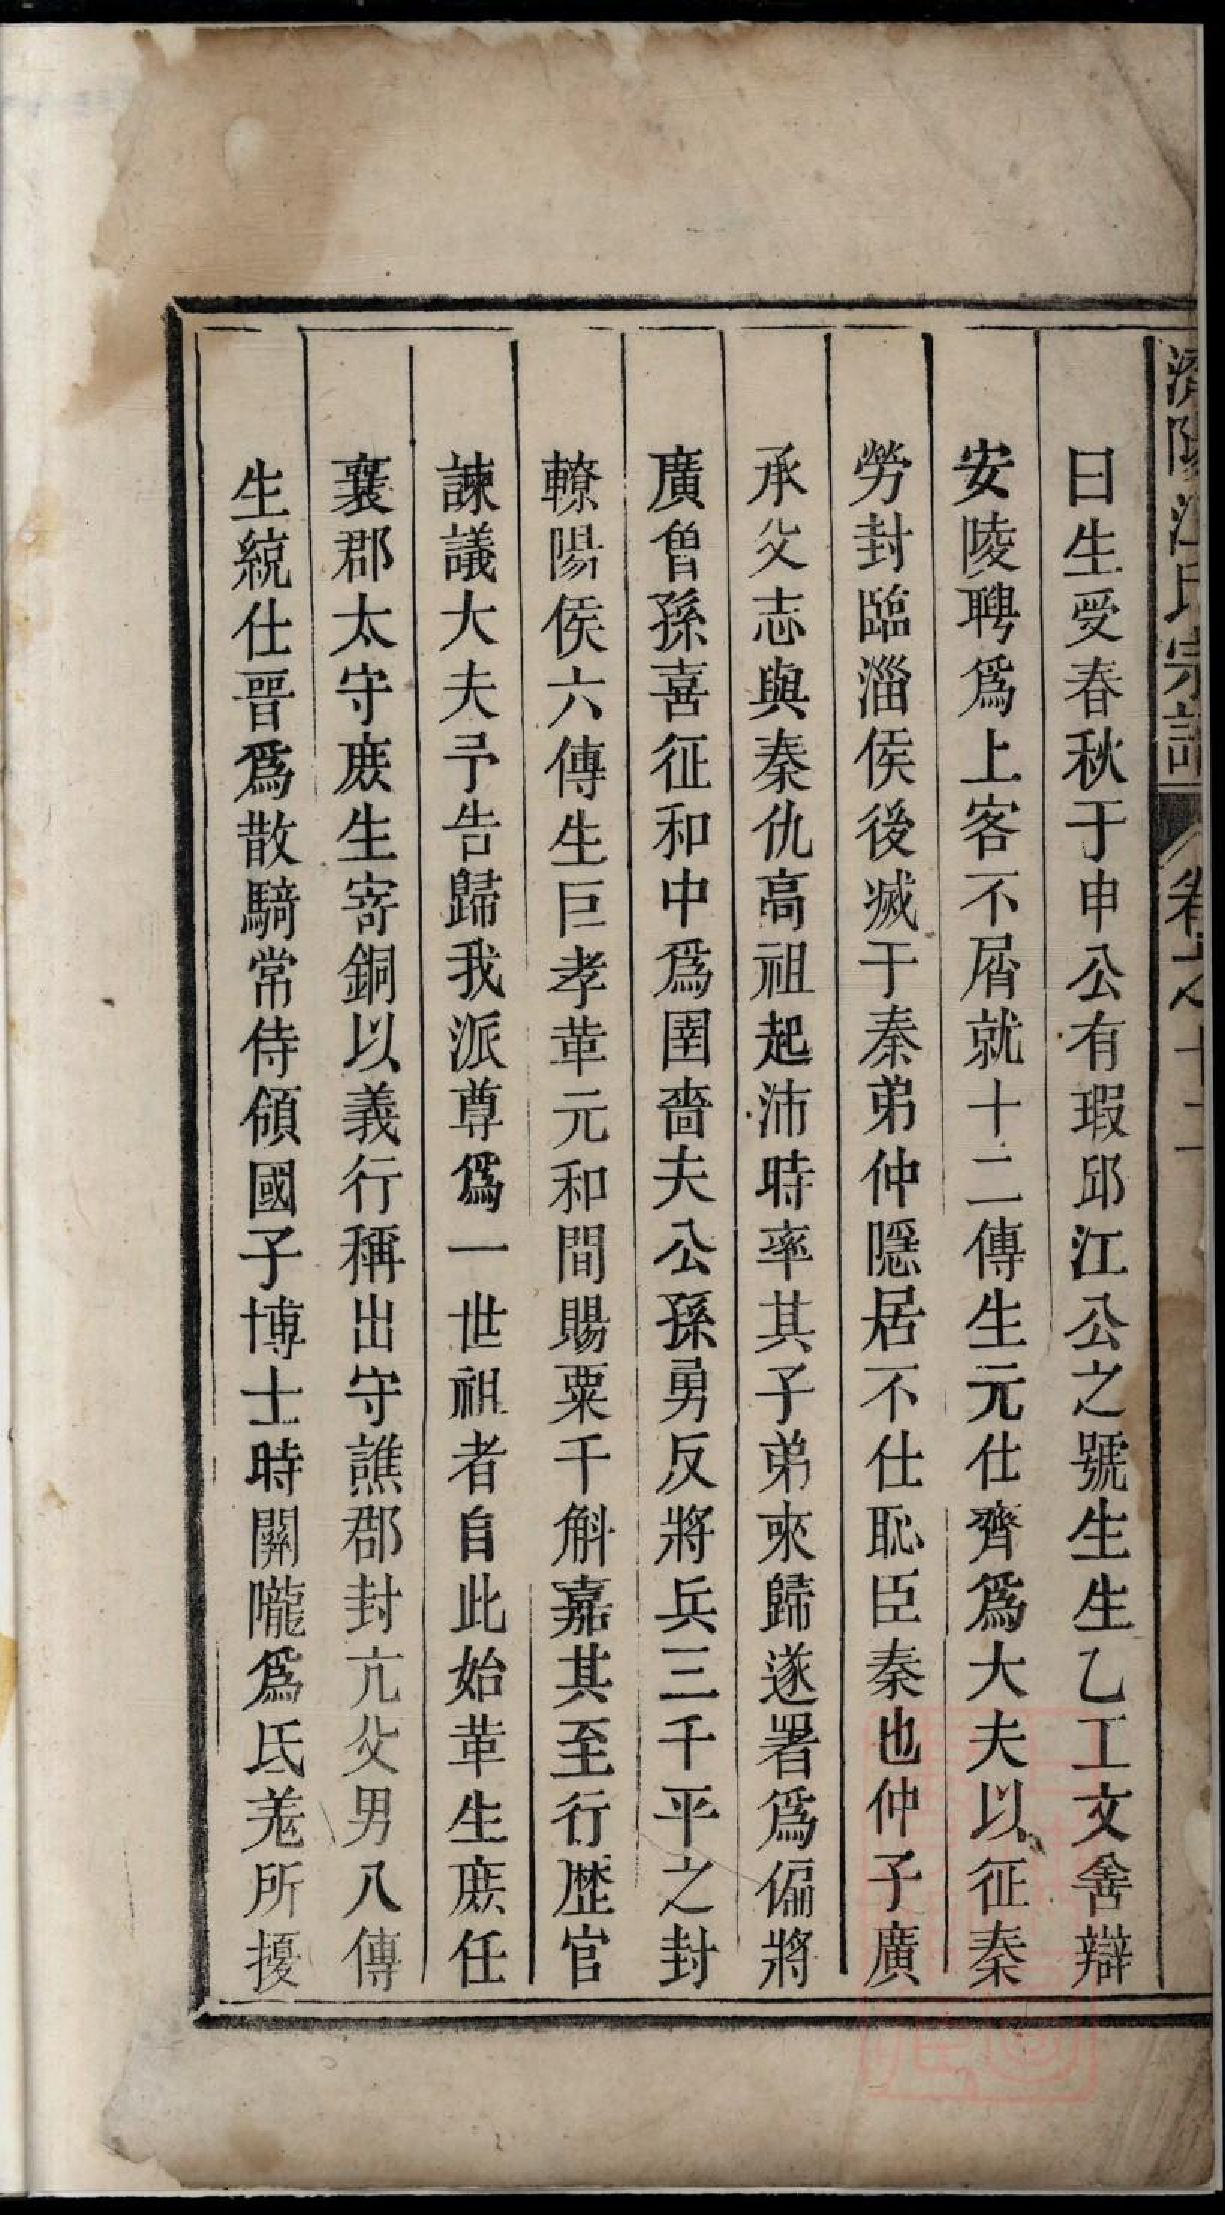 濟陽江氏宗譜 卷之十二
日生受春秋于申公有瑕邱江公之號生生乙工文舍辯
安陵聘爲上客不屑就十二傳生元仕齊爲大夫以征秦
勞封臨淄侯後滅于秦弟仲隱居不仕恥臣秦也仲子廣
承父志與秦仇高祖起沛時率其子弟來歸遂署爲偏將
廣曾孫喜征和中爲圉嗇夫公孫勇反將兵三千平之封
轑陽侯六傳生巨孝革元和間賜粟千斛嘉其至行歷官
諫議大夫予告歸我派尊爲一世祖者自此始革生庶任
襄郡太守庶生寄銅以義行稱出守譙郡封亢父男八傳
生統仕晉爲散騎常侍領國子博士時關隴爲氐羗所擾